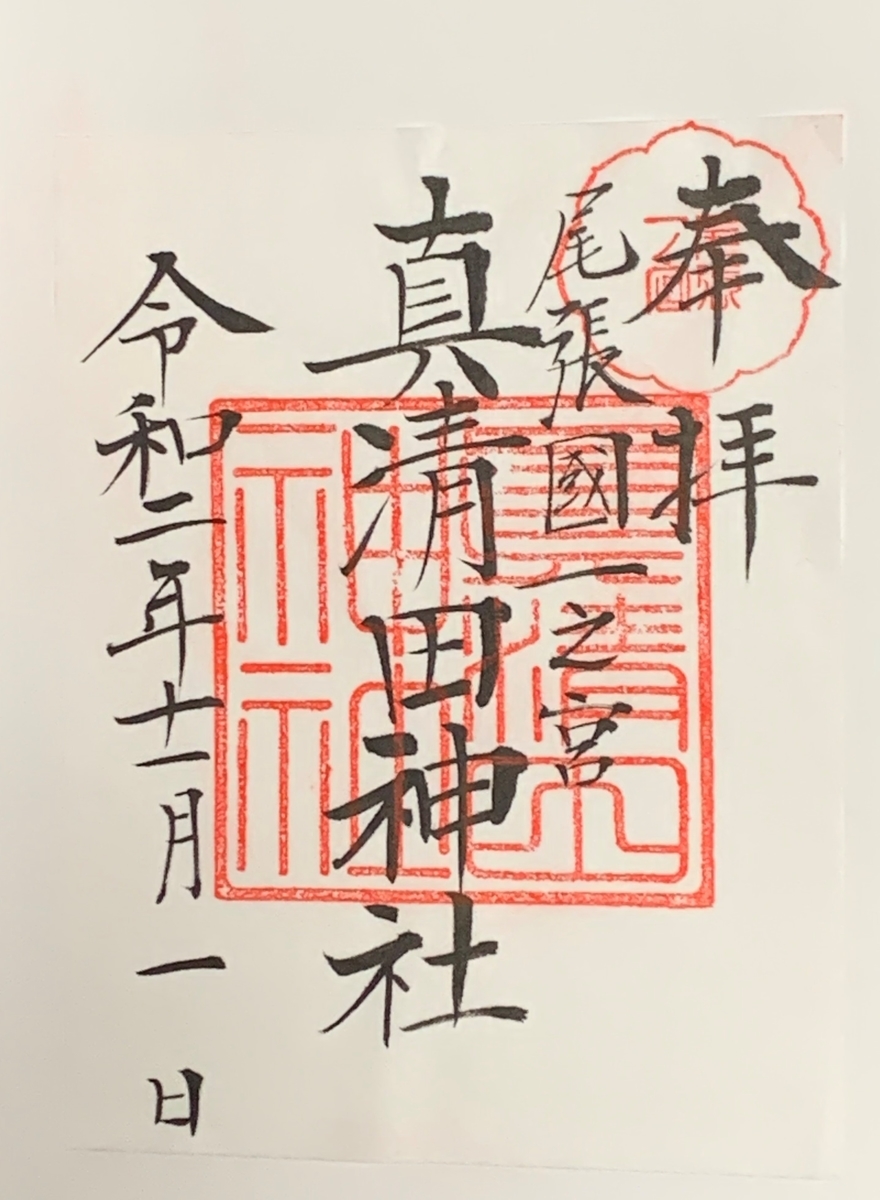 奉拝
尾張國一之宮
真清田神社
令和二年十一月一日